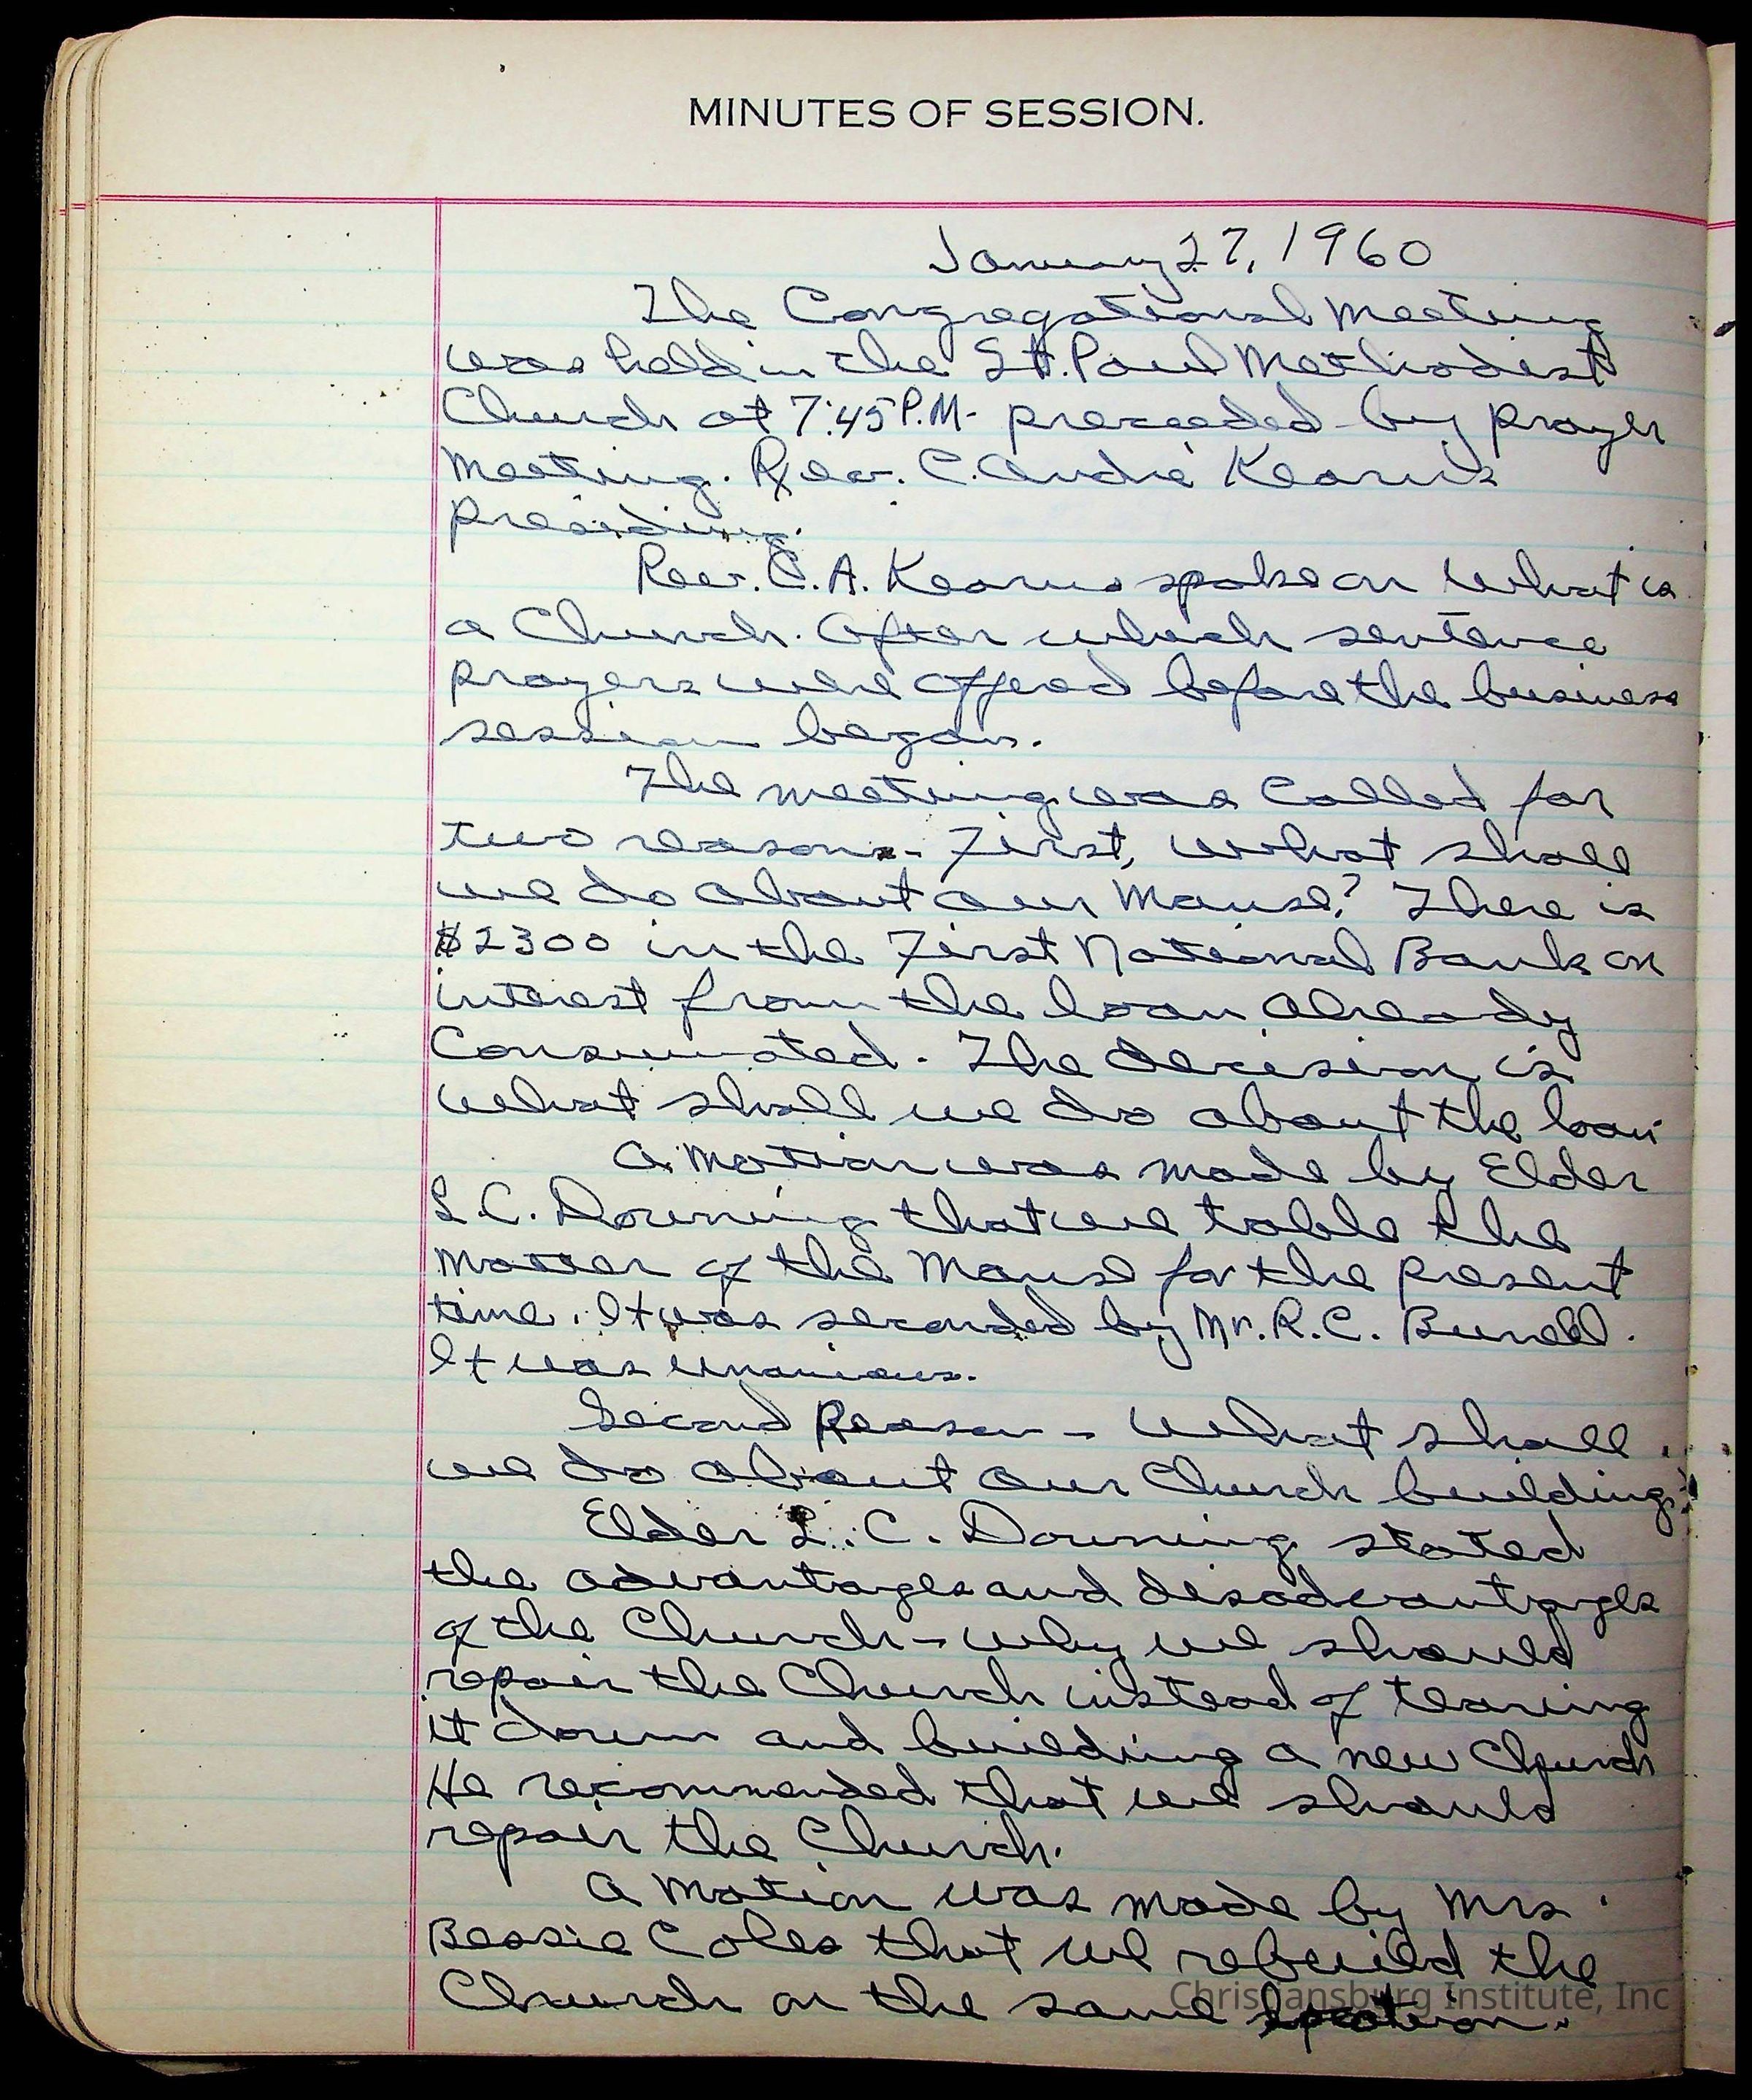 MINUTES OF SESSION.
January 27, 1960
The Congregational Meeting
was held in the St. Paul Methodist
Church at 7:45 P.M- preceeded by prayer
meeting. Rev. C. Andre' Kearns
presiding.
Rev. C. A. Kearns spoke on What is
a Church. After which sentence
prayers were offered before the business
session began.
The meeting was called for
two reasons- First, what shall
we do about our Manse? There is
$2300 in the First National Bank on
interest from the loan already
Consumated. The decision is
what shall we do about the loan
A motion was made by Elder
L.C. Downing that we table the
matter of the Manse for the present
time. It was seconded by Mr. R.C.
It was unanious.
Second Reason - What shall
we do about our Church building?
Elder L. C. Downing stated
the advantages and disadvantages
of the Church - why we should
repair the Church instead of tearing
it down and building a new Church
He recommended that we should
repair the Church.
A motion was made by Mrs
Bessie Coles that we rebuild the
Church on the same location.
Christiansburg Institute, Inc